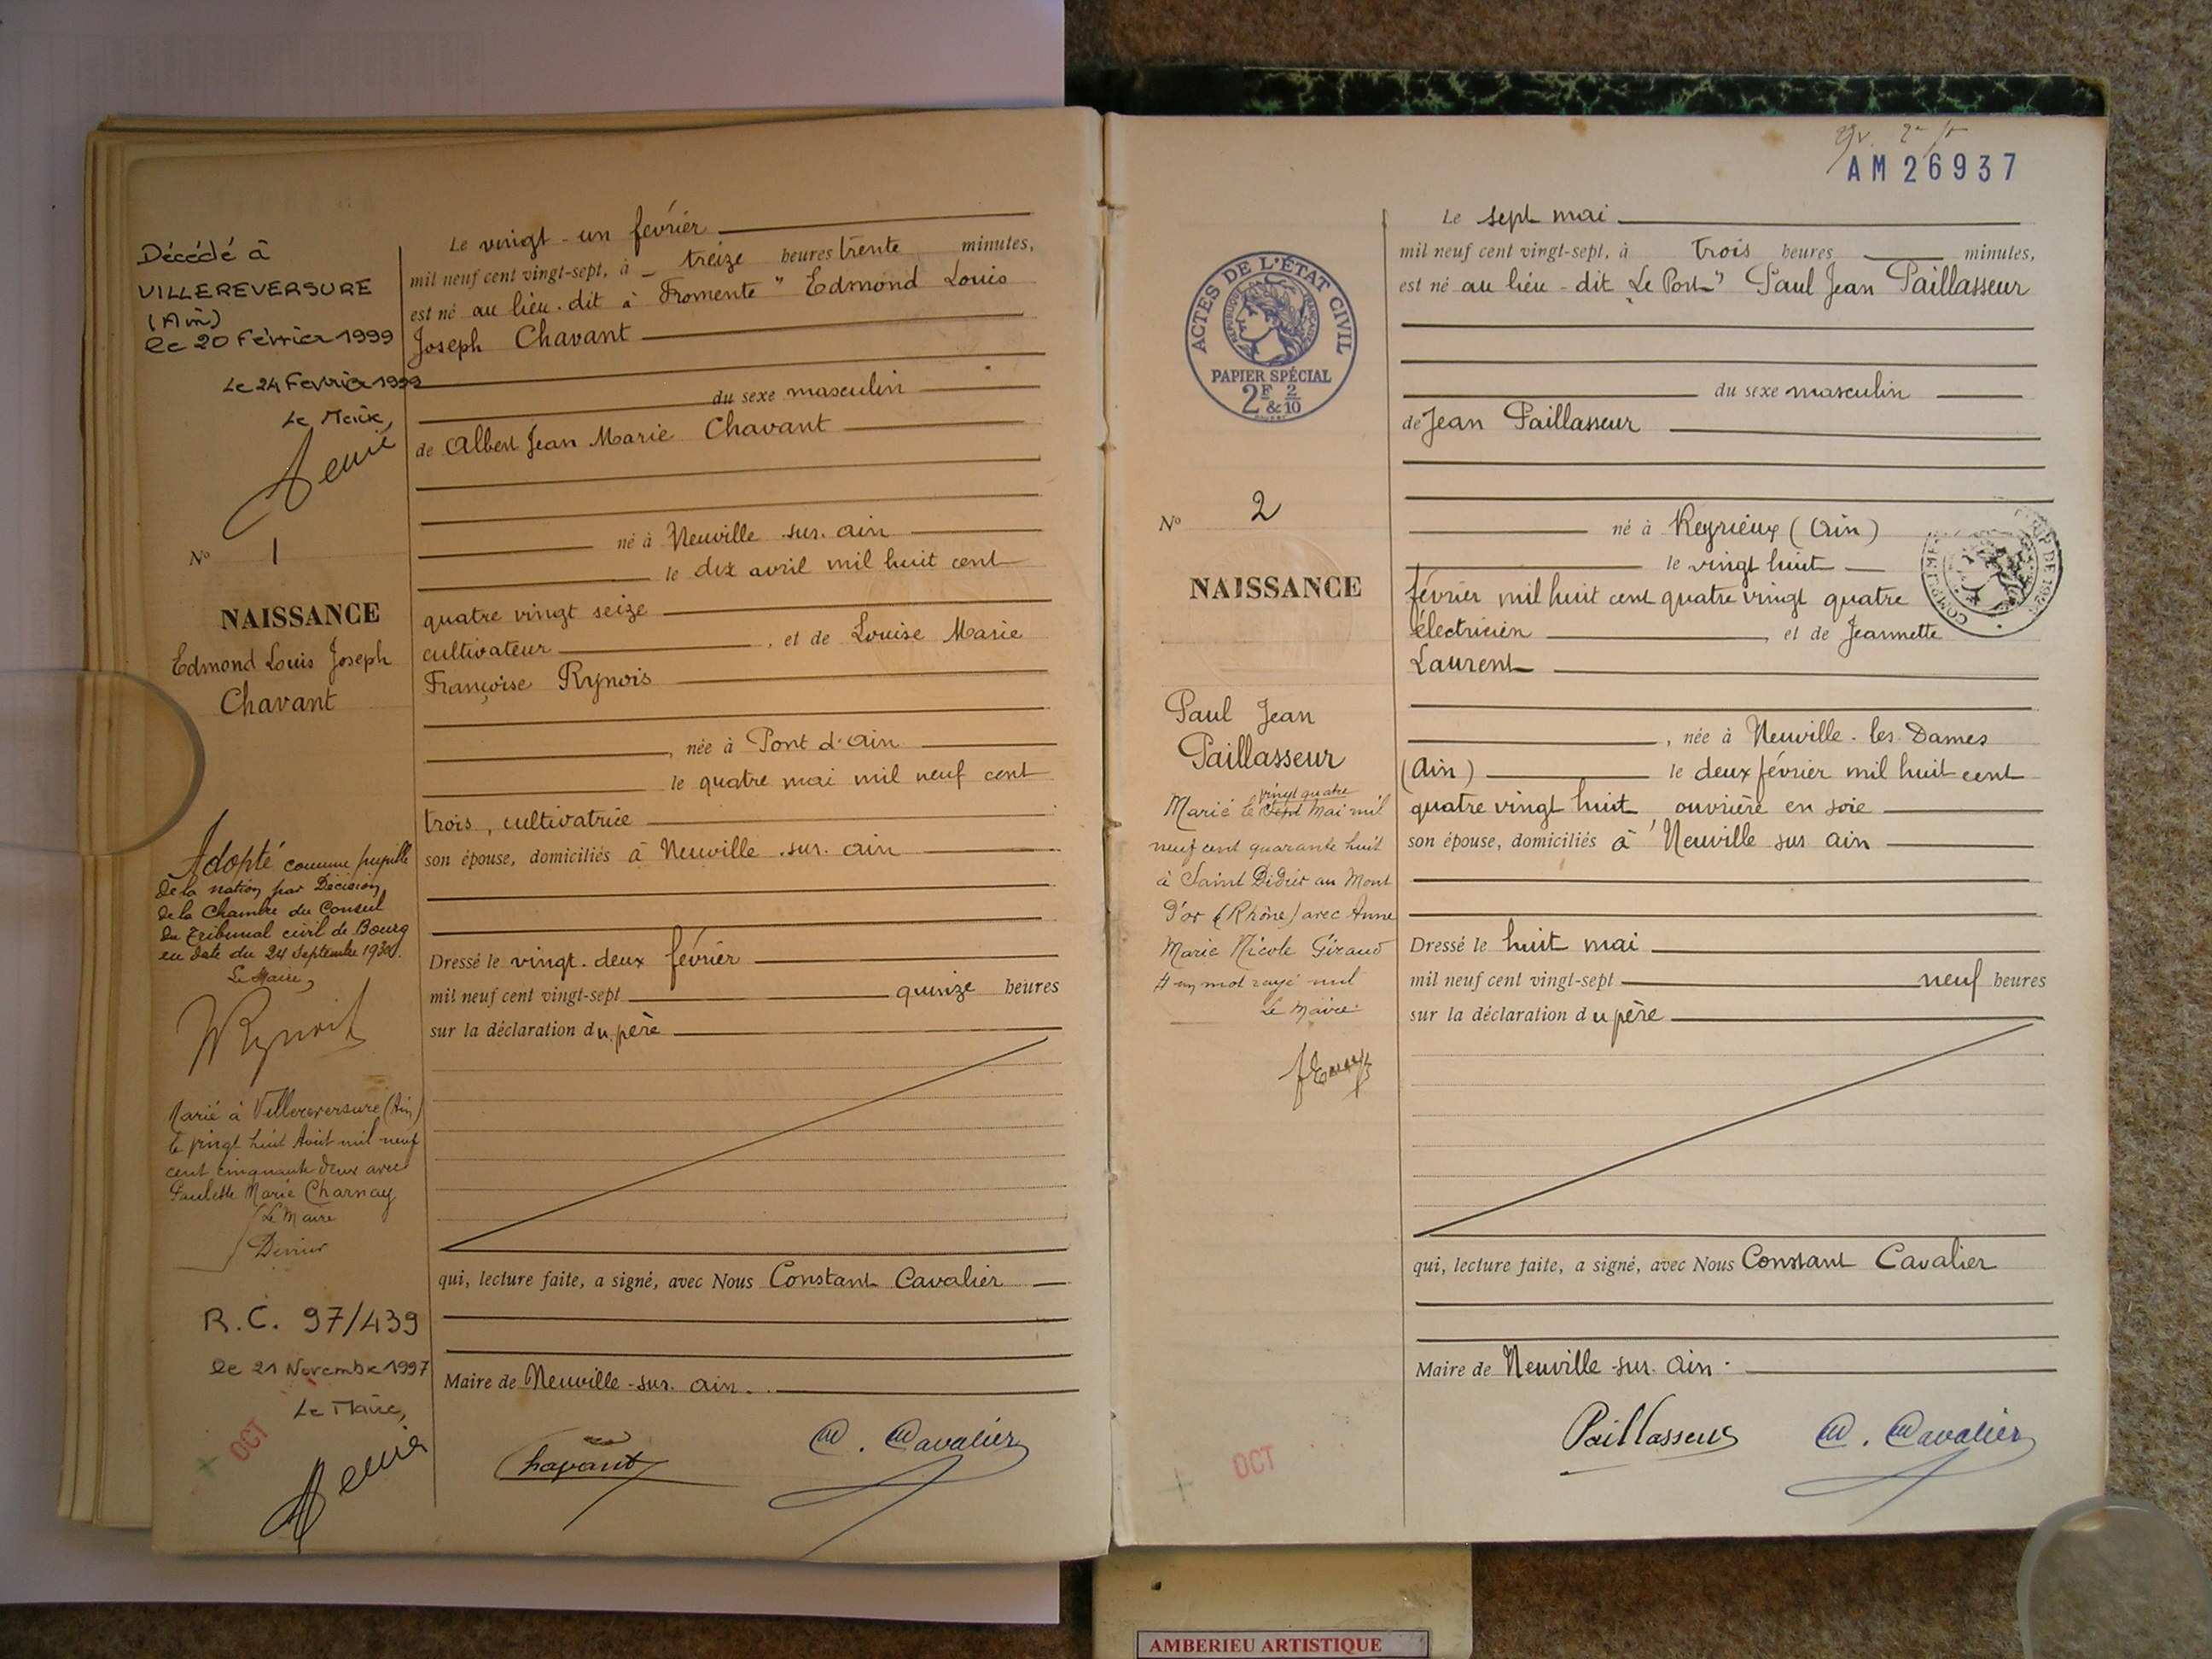 Décédé à
VILLEREVERSURE
(Ain)
le 20 Février 1999
Le 24 Février 1999
Le Maire,
N° 1
NAISSANCE
Edmond Louis Joseph
Chavant
Adopté comme pupille
de la nation par Décision
de la Chambre du Conseil
du Tribunal civil de Bourg
en date du 24 Septembre
Le Maire,
Marié à Villereversure (Ain)
le vingt huit Août mil neuf
cent cinquante deux avec
Paulette Marie Charnay
Le Maire
R.C. 97/439
le 21 Novembre 1997
Le Maire,
OCT
Le vingt-un février
mil neuf cent vingt-sept, à treize heures trente minutes,
est né au lieu-dit à Fromente" Edmond Louis
Joseph Chavant
du sexe masculin
de Albert Jean Marie Chavant
né à Neuville-sur-Ain
le dix avril mil huit cent
quatre vingt seize
cultivateur, et de Louise Marie
Françoise Rynois
, née à Pont d'Ain
le quatre mai mil neuf cent
trois, cultivatrice
son épouse, domiciliés à Neuville-sur-Ain
Dressé le vingt-deux février
mil neuf cent vingt-sept quinze heures
sur la déclaration du père
qui, lecture faite, a signé, avec Nous Constant Cavalier
Maire de Neuville-sur-Ain.
Chavant C. Cavalier
AM 26937
ACTES DE L'ÉTAT CIVIL
RÉPUBLIQUE FRANÇAISE
PAPIER SPÉCIAL
2F & 2/10
N° 2
NAISSANCE
Paul Jean
Paillasseur
vingt quatre
Marié le sept Mai mil
neuf cent quarante huit
à Saint Didier au Mont
d'or (Rhône) avec Anne
Marie Nicole Giraud
# un mot rayé nul
Le Maire
OCT
Le sept mai
mil neuf cent vingt-sept, à trois heures minutes,
est né au lieu-dit "Le Port" Paul Jean Paillasseur
du sexe masculin
de Jean Paillasseur
né à Reyrieux (Ain)
le vingt huit
février mil huit cent quatre vingt quatre
électricien, et de Jeannette
Laurent
, née à Neuville-les-Dames
(Ain) le deux février mil huit cent
quatre vingt huit, ouvrière en soie
son épouse, domiciliés à Neuville sur Ain
Dressé le huit mai
mil neuf cent vingt-sept neuf heures
sur la déclaration du père
qui, lecture faite, a signé, avec Nous Constant Cavalier
Maire de Neuville-sur-Ain.
Paillasseur C. Cavalier
AMBERIEU ARTISTIQUE